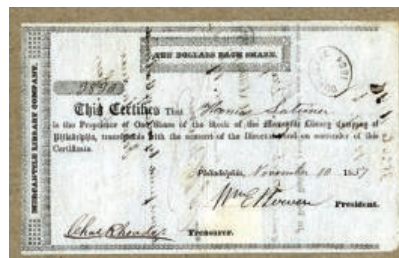 MERCANTILE LIBRARY COMPANY.
TEN DOLLARS EACH SHARE.
This Certifies That
is the Proprietor of One Share of the Stock of the Mercantile Library Company of
Philadelphia, transferable with the consent of the Directors and on surrender of this
Certificate.
Philadelphia, November 10 1857
Wm E Bowen President.
Chas Rhoads Treasurer.